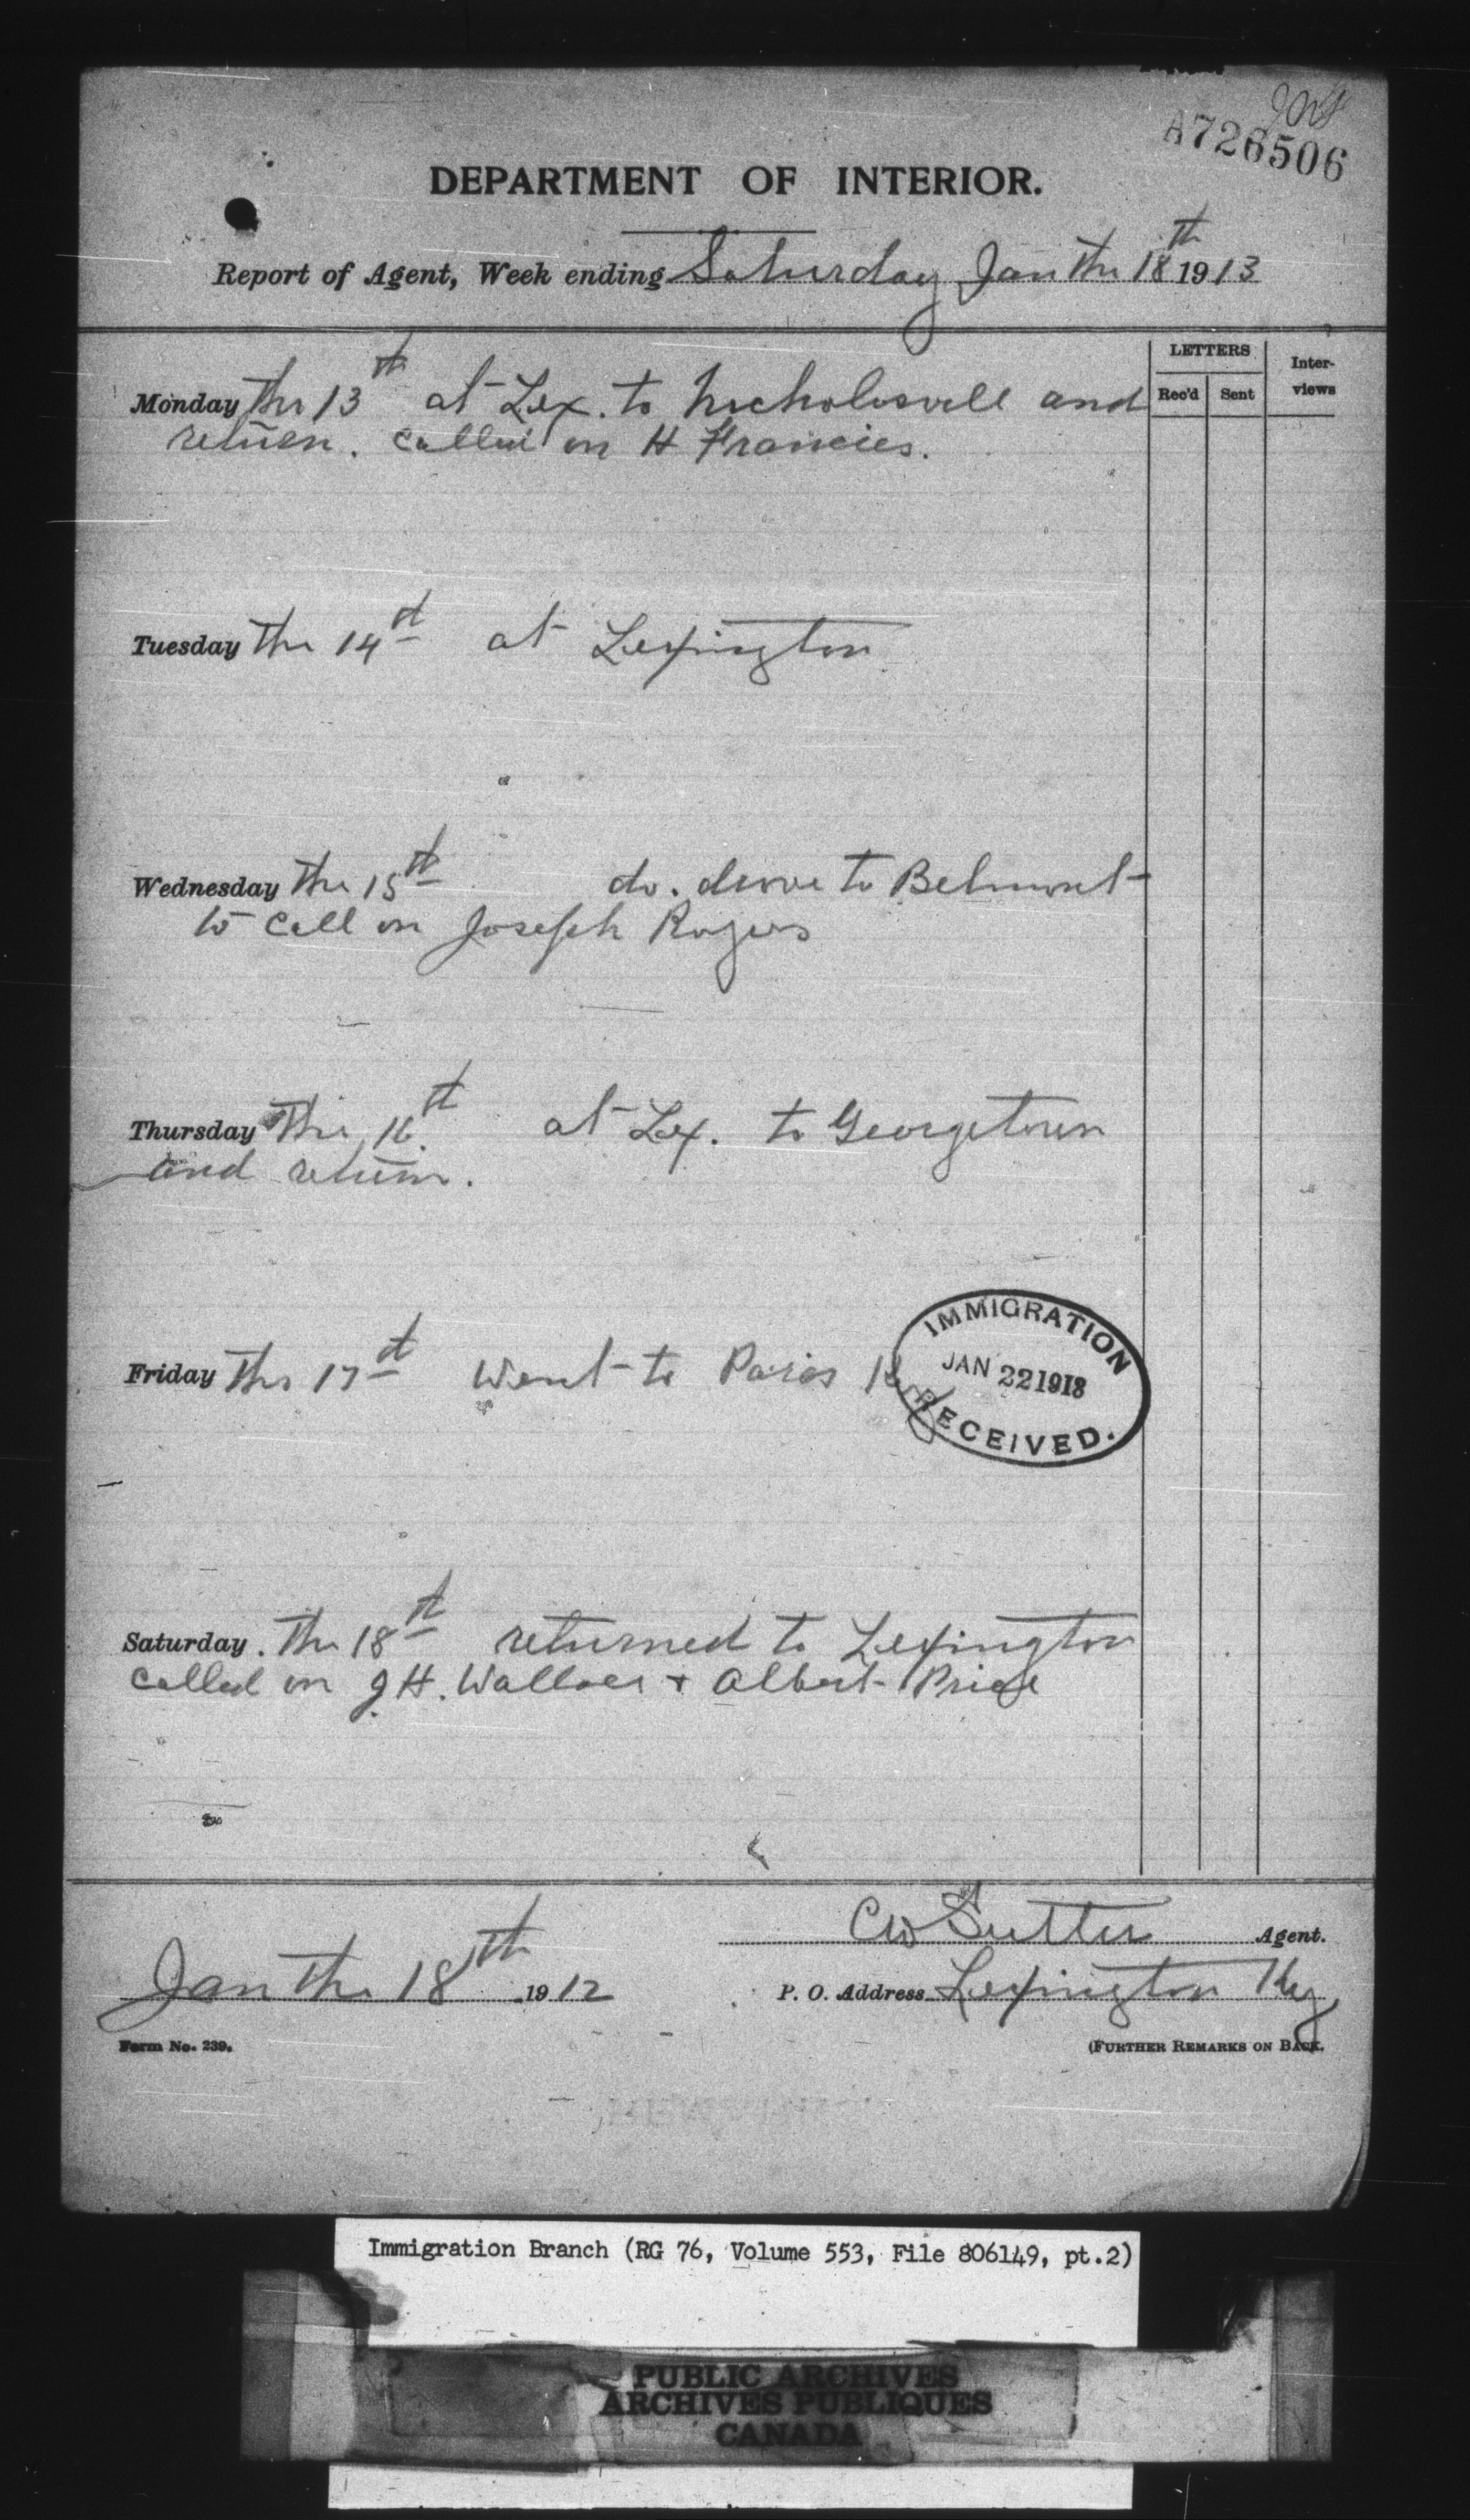 A726506
DEPARTMENT OF INTERIOR.
Report of Agent, Week ending Saturday Jan the 18th 1913
LETTERS
Rec'd Sent
Inter-
views
Monday the 13th at Lex. to Nicholasvill and
return. called on H Francies.
Tuesday the 14th at Lexington
Wednesday the 15th do. drove to Belmont
to call on Joseph Rogers
Thursday the 16th at Lex. to Georgetown
and return.
Friday the 17th Went to Paris Ky
IMMIGRATION
JAN 22 1913
RECEIVED.
Saturday. the 18th returned to Lexington
called on J H. Wallace + Albert Price
CW Sutter Agent.
Jan the 18th 1912
P. O. Address Lexington Ky
Form No. 239.
(FURTHER REMARKS ON BACK.
Immigration Branch (RG 76, Volume 553, File 806149, pt.2)
PUBLIC ARCHIVES
ARCHIVES PUBLIQUES
CANADA